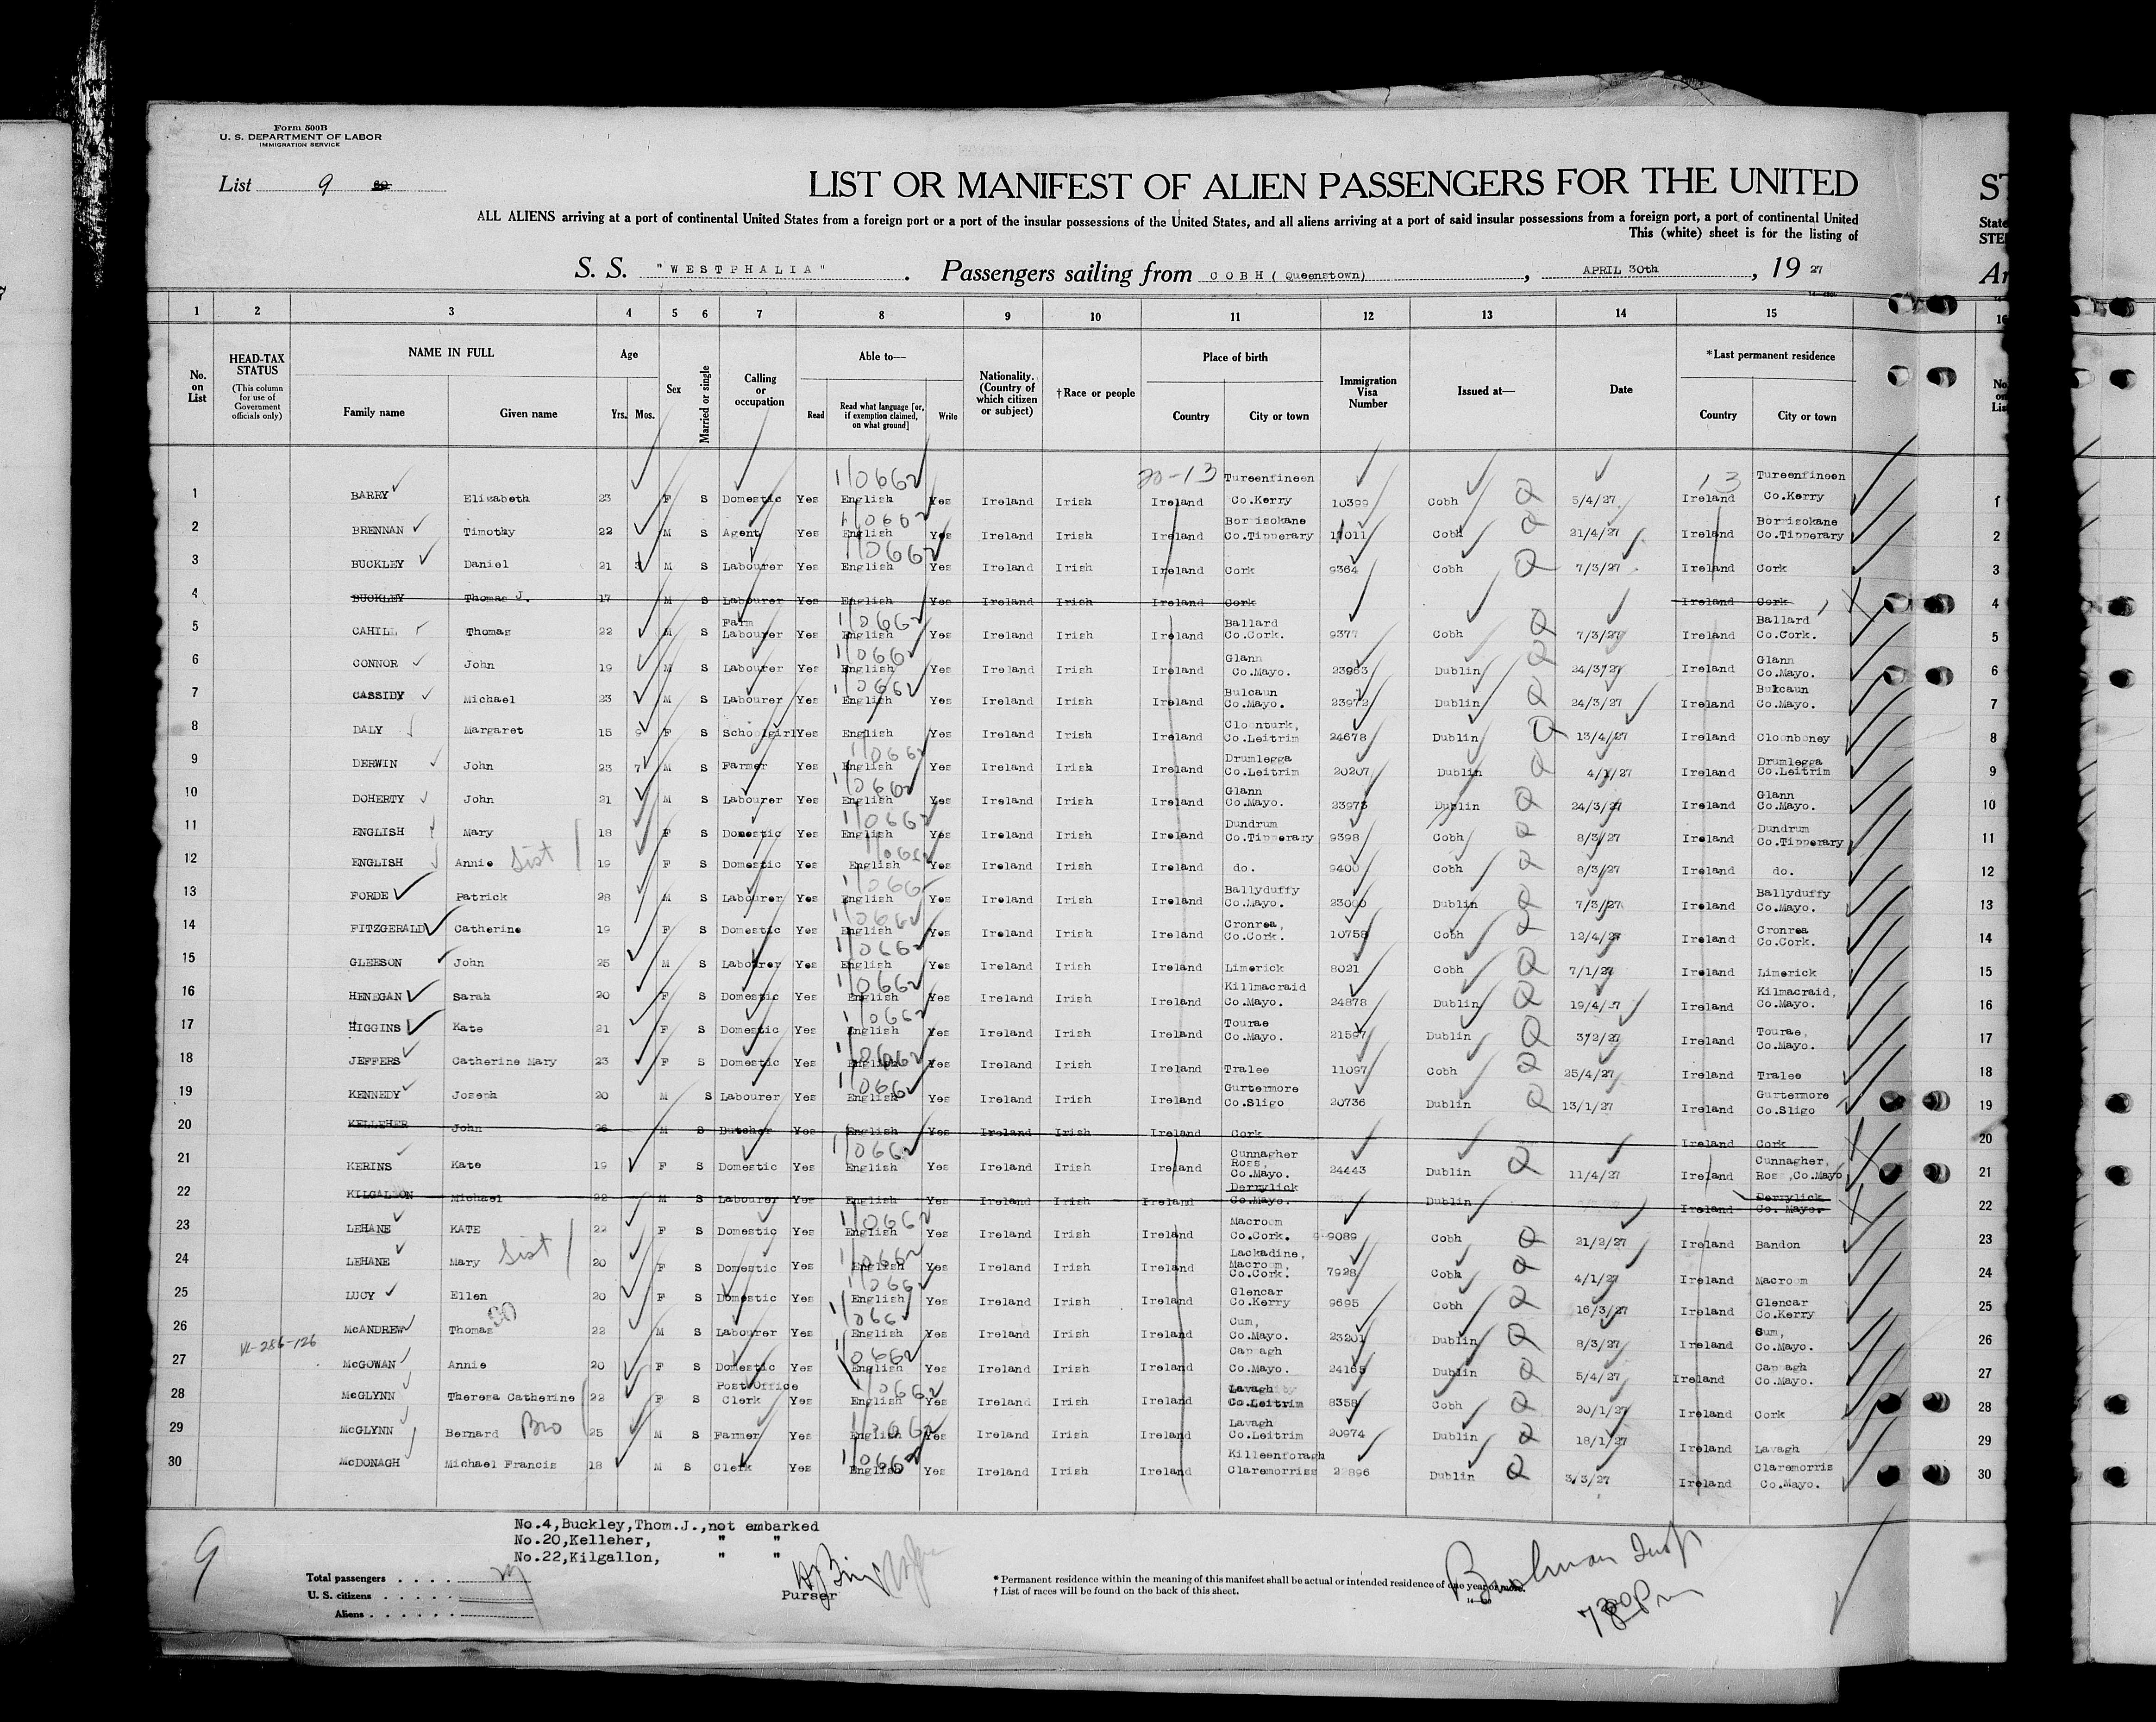 Form 500B
U. S. DEPARTMENT OF LABOR
IMMIGRATION SERVICE
List 9
LIST OR MANIFEST OF ALIEN PASSENGERS FOR THE UNITED
ALL ALIENS arriving at a port of continental United States from a foreign port or a port of the insular possessions of the United States, and all aliens arriving at a port of said insular possessions from a foreign port, a port of continental United
This (white) sheet is for the listing of
S. S. "WESTPHALIA". Passengers sailing from COBH (Queenstown), APRIL 30th, 19 27
1 2 3 4 5 6 7 8 9 10 11 12 13 14 15
No. on List HEAD-TAX STATUS (This column for use of Government officials only) NAME IN FULL Family name Given name Age Yrs. Mos. Sex Married or single Calling or occupation Able to— Read Read what language [or, if exemption claimed, on what ground] Write Nationality. (Country of which citizen or subject) †Race or people Place of birth Country City or town Immigration Visa Number Issued at— Date *Last permanent residence Country City or town
20-13 Tureenfineen 13 Tureenfineen
1 BARRY Elizabeth 23 F S Domestic Yes English Yes Ireland Irish Ireland Co.Kerry 10399 Cobh 5/4/27 Ireland Co.Kerry 1
Borrisokane Borrisokane
2 BRENNAN Timothy 22 M S Agent Yes English Yes Ireland Irish Ireland Co.Tipperary 11011 Cobh 21/4/27 Ireland Co.Tipperary 2
3 BUCKLEY Daniel 21 M S Labourer Yes English Yes Ireland Irish Ireland Cork 9364 Cobh 7/3/27 Ireland Cork 3
4 BUCKLEY Thomas J. 17 M S Labourer Yes English Yes Ireland Irish Ireland Cork Ireland Cork 4
Farm Ballard Ballard
5 CAHILL Thomas 22 M S Labourer Yes English Yes Ireland Irish Ireland Co.Cork. 9377 Cobh 7/3/27 Ireland Co.Cork. 5
Glann Glann
6 CONNOR John 19 M S Labourer Yes English Yes Ireland Irish Ireland Co.Mayo. 23963 Dublin 24/3/27 Ireland Co.Mayo. 6
Bulcaun Bulcaun
7 CASSIDY Michael 23 M S Labourer Yes English Yes Ireland Irish Ireland Co.Mayo. 23972 Dublin 24/3/27 Ireland Co.Mayo. 7
Cloonturk,
8 DALY Margaret 15 9 F S Schoolgirl Yes English Yes Ireland Irish Ireland Co.Leitrim 24678 Dublin 13/4/27 Ireland Cloonboney 8
Drumlegga Drumlegga
9 DERWIN John 23 7 M S Farmer Yes English Yes Ireland Irish Ireland Co.Leitrim 20207 Dublin 4/1/27 Ireland Co.Leitrim 9
Glann Glann
10 DOHERTY John 21 M S Labourer Yes English Yes Ireland Irish Ireland Co.Mayo. 23973 Dublin 24/3/27 Ireland Co.Mayo. 10
Dundrum Dundrum
11 ENGLISH Mary 18 F S Domestic Yes English Yes Ireland Irish Ireland Co.Tipperary 9398 Cobh 8/3/27 Ireland Co.Tipperary 11
12 ENGLISH Annie Sist 19 F S Domestic Yes English Yes Ireland Irish Ireland do. 9400 Cobh 8/3/27 Ireland do. 12
Ballyduffy Ballyduffy
13 FORDE Patrick 28 M S Labourer Yes English Yes Ireland Irish Ireland Co.Mayo. 23000 Dublin 7/3/27 Ireland Co.Mayo. 13
Cronrea, Cronrea
14 FITZGERALD Catherine 19 F S Domestic Yes English Yes Ireland Irish Ireland Co.Cork. 10758 Cobh 12/4/27 Ireland Co.Cork. 14
15 GLEESON John 25 M S Labourer Yes English Yes Ireland Irish Ireland Limerick 8021 Cobh 7/1/27 Ireland Limerick 15
Killmacraid Kilmacraid,
16 HENEGAN Sarah 20 F S Domestic Yes English Yes Ireland Irish Ireland Co.Mayo. 24878 Dublin 19/4/27 Ireland Co.Mayo. 16
Tourae Tourae,
17 HIGGINS Kate 21 F S Domestic Yes English Yes Ireland Irish Ireland Co.Mayo. 21597 Dublin 3/2/27 Ireland Co.Mayo. 17
18 JEFFERS Catherine Mary 23 F S Domestic Yes English Yes Ireland Irish Ireland Tralee 11097 Cobh 25/4/27 Ireland Tralee 18
Gurtermore Gurtermore
19 KENNEDY Joseph 20 M S Labourer Yes English Yes Ireland Irish Ireland Co.Sligo 20736 Dublin 13/1/27 Ireland Co.Sligo 19
20 KELLEHER John 26 M S Butcher Yes English Yes Ireland Irish Ireland Cork Ireland Cork 20
Cunnagher Cunnagher,
Ross,
21 KERINS Kate 19 F S Domestic Yes English Yes Ireland Irish Ireland Co.Mayo. 24443 Dublin 11/4/27 Ireland Ross,Co.Mayo 21
Derrylick Derrylick
22 KILGALLON Michael 22 M S Labourer Yes English Yes Ireland Irish Ireland Co.Mayo. Dublin Ireland Co. Mayo. 22
Macroom
23 LEHANE KATE 22 F S Domestic Yes English Yes Ireland Irish Ireland Co.Cork. 9089 Cobh 21/2/27 Ireland Bandon 23
Lackadine,
Macroom,
24 LEHANE Mary Sist 20 F S Domestic Yes English Yes Ireland Irish Ireland Co.Cork. 7928 Cobh 4/1/27 Ireland Macroom 24
Glencar Glencar
25 LUCY Ellen 20 F S Domestic Yes English Yes Ireland Irish Ireland Co.Kerry 9695 Cobh 16/3/27 Ireland Co.Kerry 25
Cum, Sum,
26 McANDREW Thomas 22 M S Labourer Yes English Yes Ireland Irish Ireland Co.Mayo. 23201 Dublin 8/3/27 Ireland Co.Mayo. 26
Cappagh Cappagh
27 McGOWAN Annie 20 F S Domestic Yes English Yes Ireland Irish Ireland Co.Mayo. 24165 Dublin 5/4/27 Ireland Co.Mayo. 27
Post Office Lavagh
28 McGLYNN Theresa Catherine 22 F S Clerk Yes English Yes Ireland Irish Ireland Co.Leitrim 8358 Cobh 20/1/27 Ireland Cork 28
Lavagh
29 McGLYNN Bernard Bro 25 M S Farmer Yes English Yes Ireland Irish Ireland Co.Leitrim 20974 Dublin 18/1/27 Ireland Lavagh 29
Killeenforagh Claremorris
30 McDONAGH Michael Francis 18 M S Clerk Yes English Yes Ireland Irish Ireland Claremorriss 22896 Dublin 3/3/27 Ireland Co.Mayo. 30
No.4,Buckley,Thom.J.,not embarked
No.20,Kelleher, " "
No.22,Kilgallon, " "
9
Total passengers
U. S. citizens
Aliens
Purser
* Permanent residence within the meaning of this manifest shall be actual or intended residence of one year or more.
† List of races will be found on the back of this sheet.